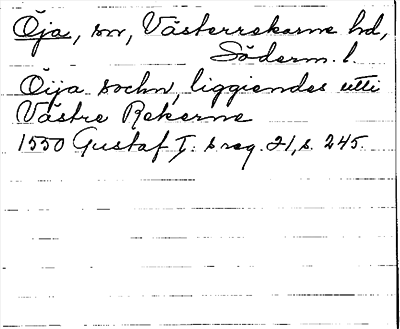 Öja, sn, Västerrekarne hd,
Söderm. l.
Öija sochn, liggiendes utti
Västre Rekarne
1550 Gustaf I:s reg. 21, s. 245.